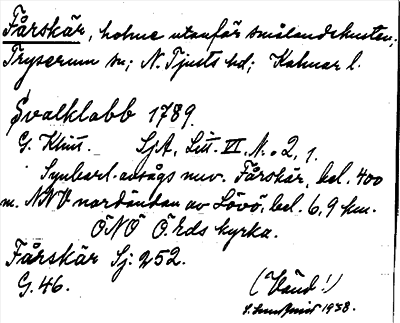 Fårskär, holme utanför smålandskusten;
Tryserum sn; N. Tjusts hd; Kalmar l.
Svalklabb 1789.
G. Klint. SjA, Litt. VI, N:o 2, 1.
Synbarl. avsågs nuv. Fårskär, bel. 400
m. NNV nordändan av Lövö, bel. 6,9 km.
ÖNÖ Ö. Eds kyrka.
Fårskär Sj. 252.
G. 46.
(Vänd!)
1938.